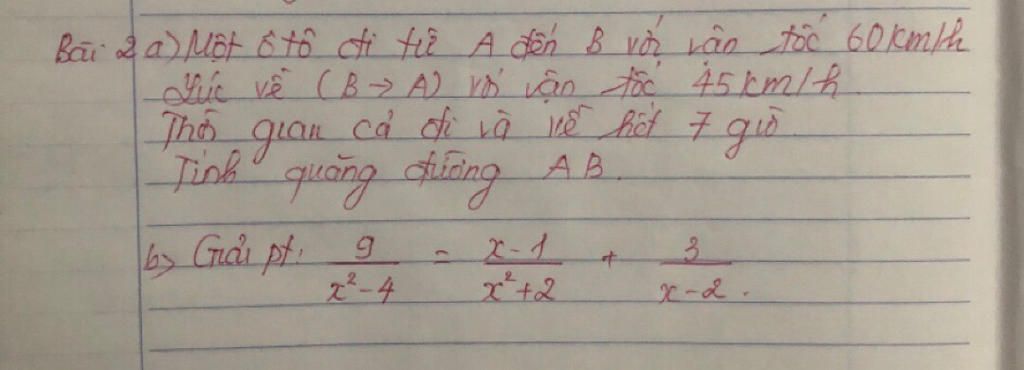 Bài 2 a) Một ô tô đi từ A đến B với vận tốc 60 km/h
Lúc về (B → A) với vận tốc 45 km/h.
Thời gian cả đi và về hết 7 giờ
Tính quãng đường AB.
b) Giải pt: 9/(x²-4) = (x-1)/(x²+2) + 3/(x-2).